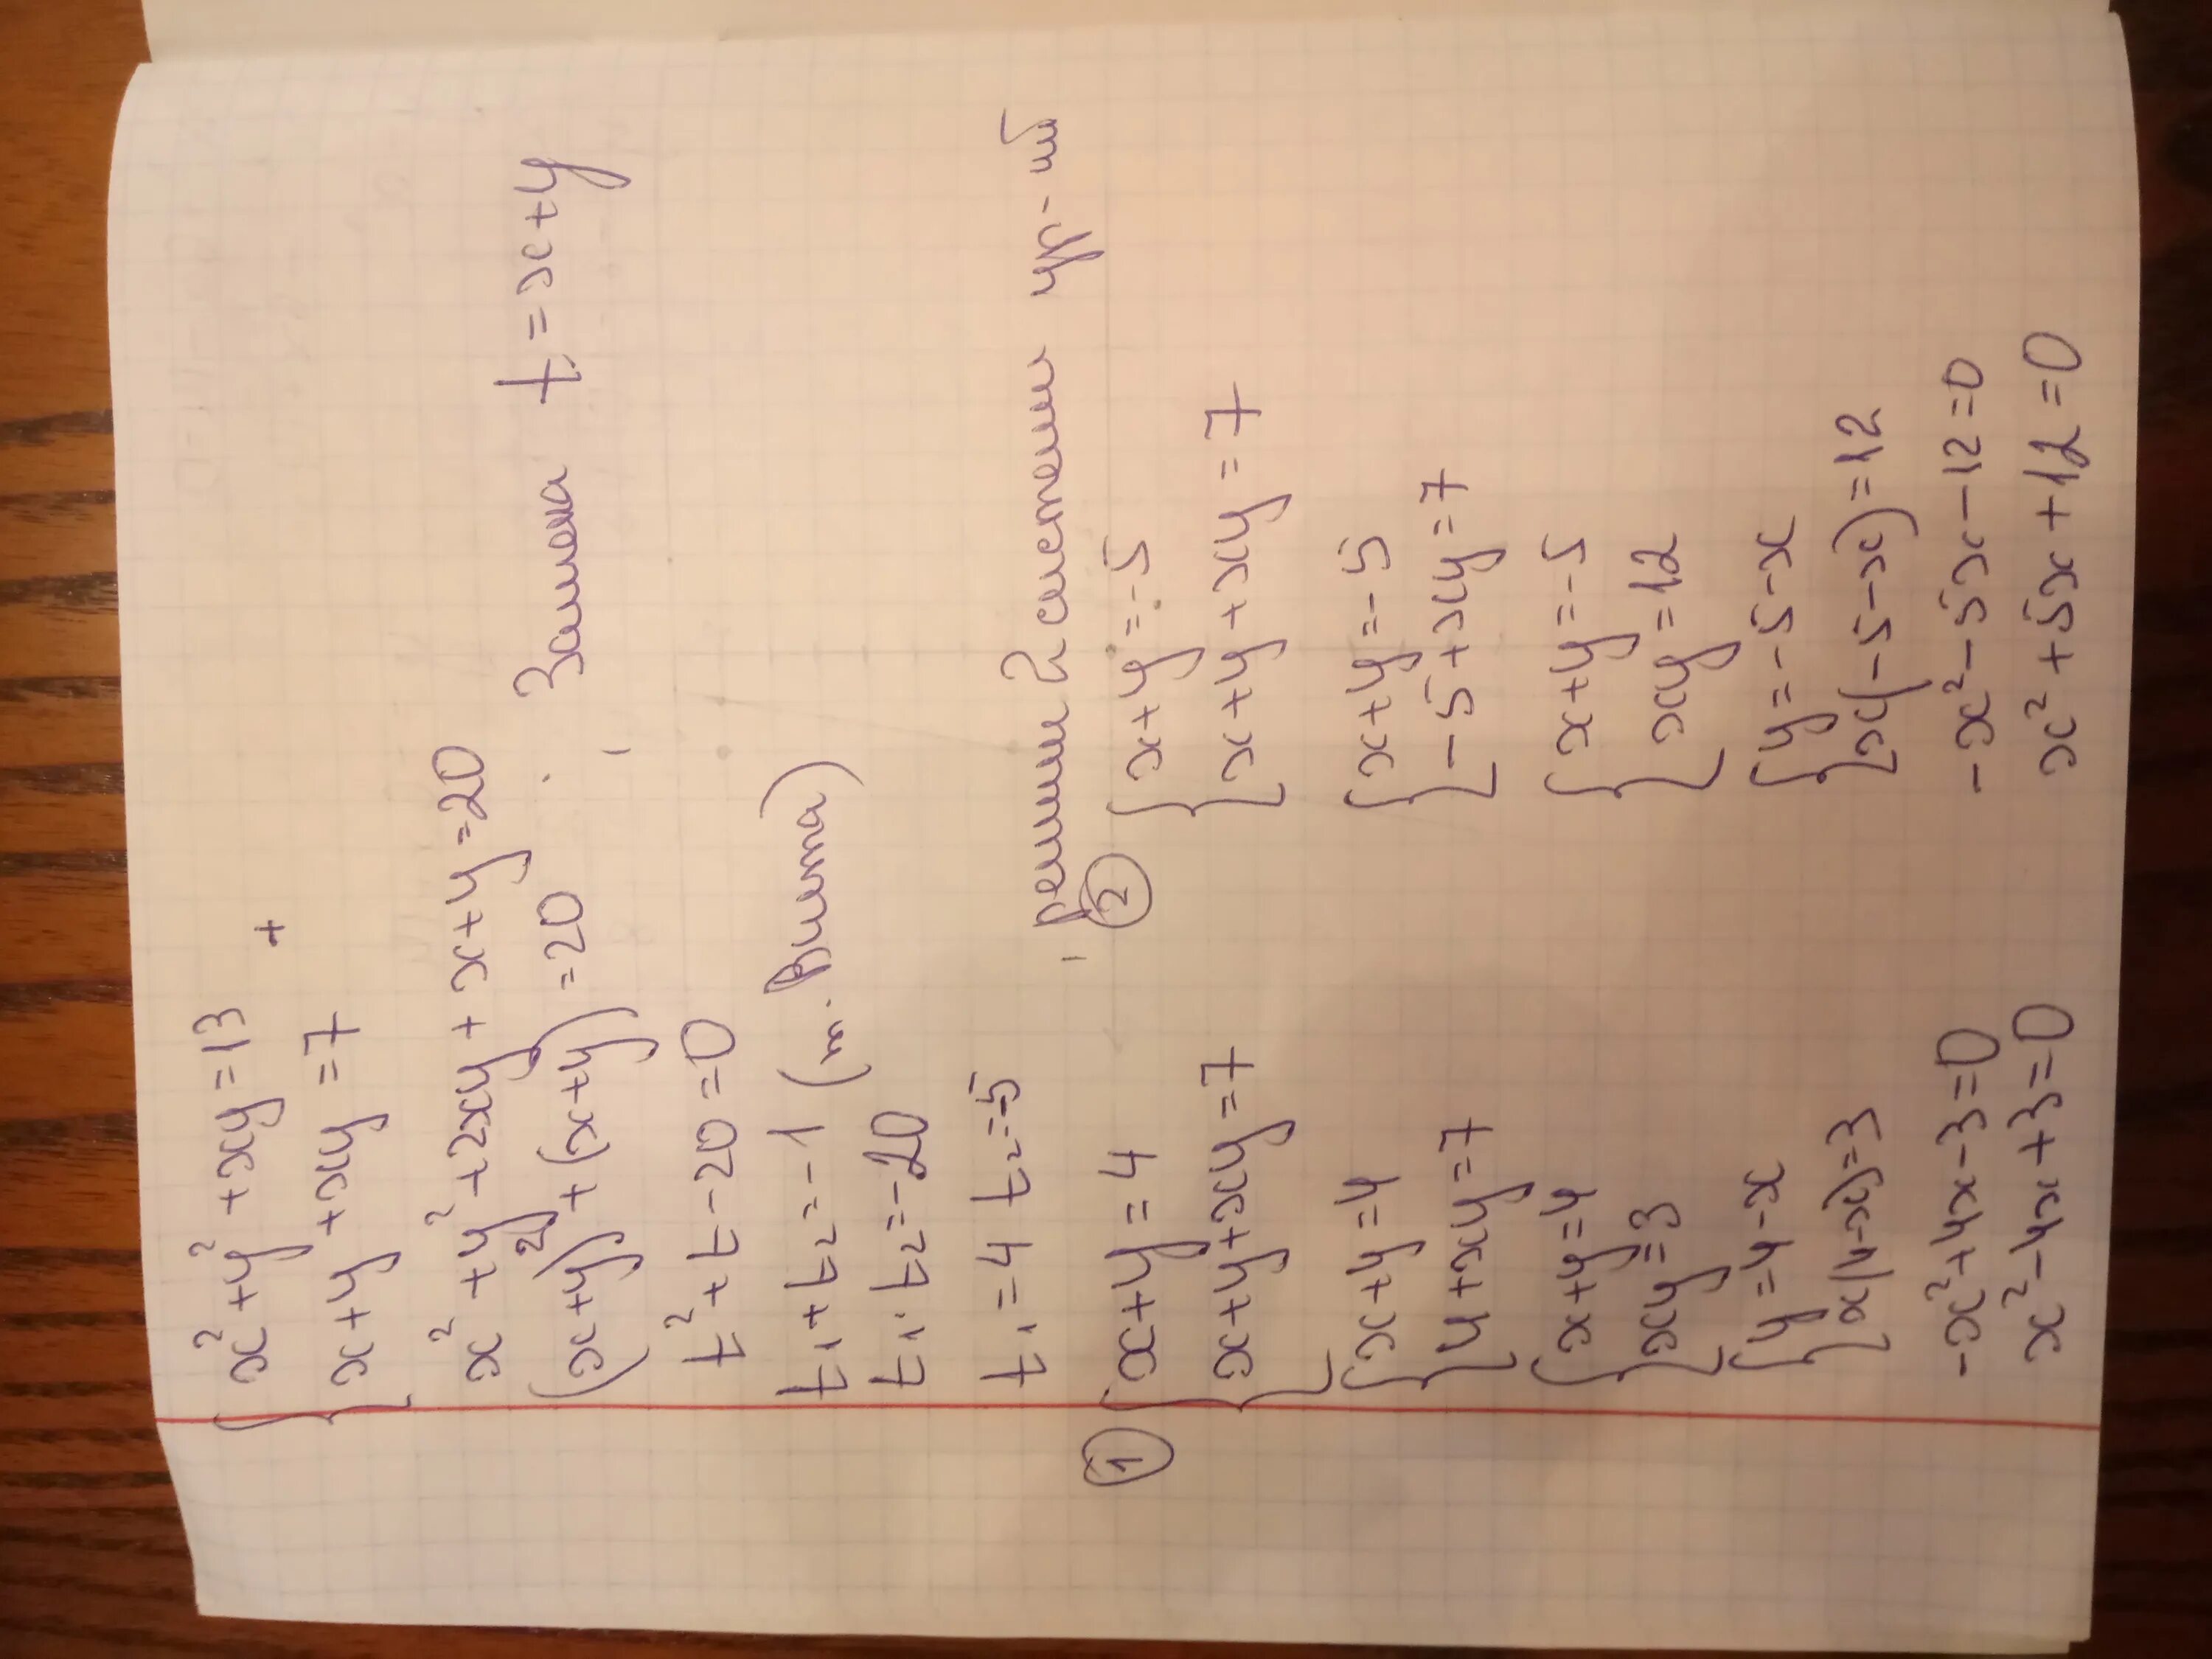 { x² + y² + xy = 13
+
{ x + y + xy = 7
x² + y² + 2xy + x + y = 20
(x + y)² + (x + y) = 20, Замена t = x + y
t² + t - 20 = 0
t₁ + t₂ = -1 (т. Виета)
t₁ · t₂ = -20
t₁ = 4 t₂ = -5
решим 2 системы ур-ий
① { x + y = 4
{ x + y + xy = 7
{ x + y = 4
{ 4 + xy = 7
{ x + y = 4
{ xy = 3
{ y = 4 - x
{ x(4 - x) = 3
-x² + 4x - 3 = 0
x² - 4x + 3 = 0
② { x + y = -5
{ x + y + xy = 7
{ x + y = -5
{ -5 + xy = 7
{ x + y = -5
{ xy = 12
{ y = -5 - x
{ x(-5 - x) = 12
-x² - 5x - 12 = 0
x² + 5x + 12 = 0